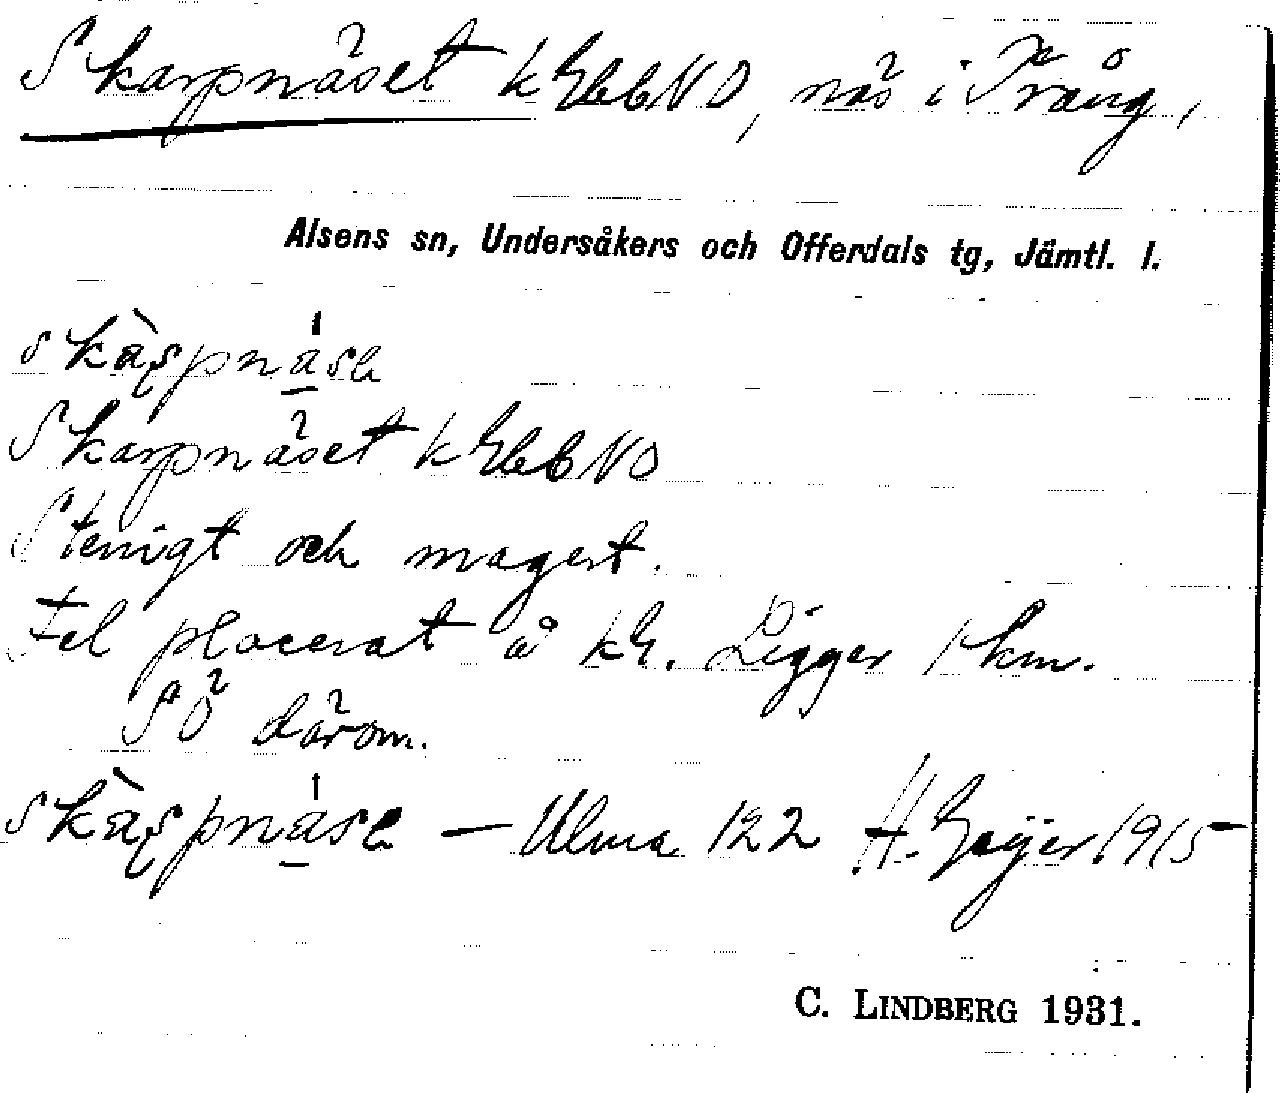 Skarpnäset kEbbNO, näs i Trång,
Alsens sn, Undersåkers och Offerdals tg, Jämtl. l.
Skarpnäset kEbbNO
Stenigt och magert.
Fel placerat å kE. Ligger 1 km.
SO därom.
— Ulma 122 H. Geijer 1915
C. LINDBERG 1931.